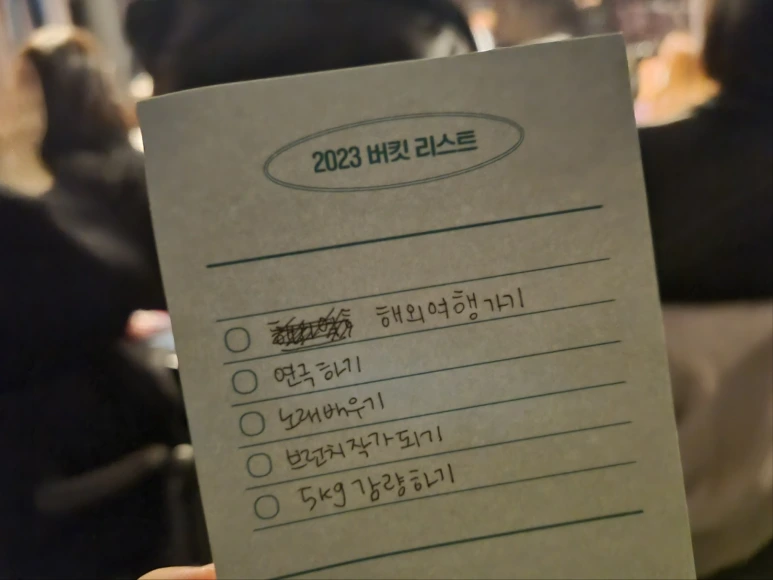 2023 버킷 리스트
해외여행 가기
연극하기
노래배우기
브런치작가 되기
5kg 감량하기